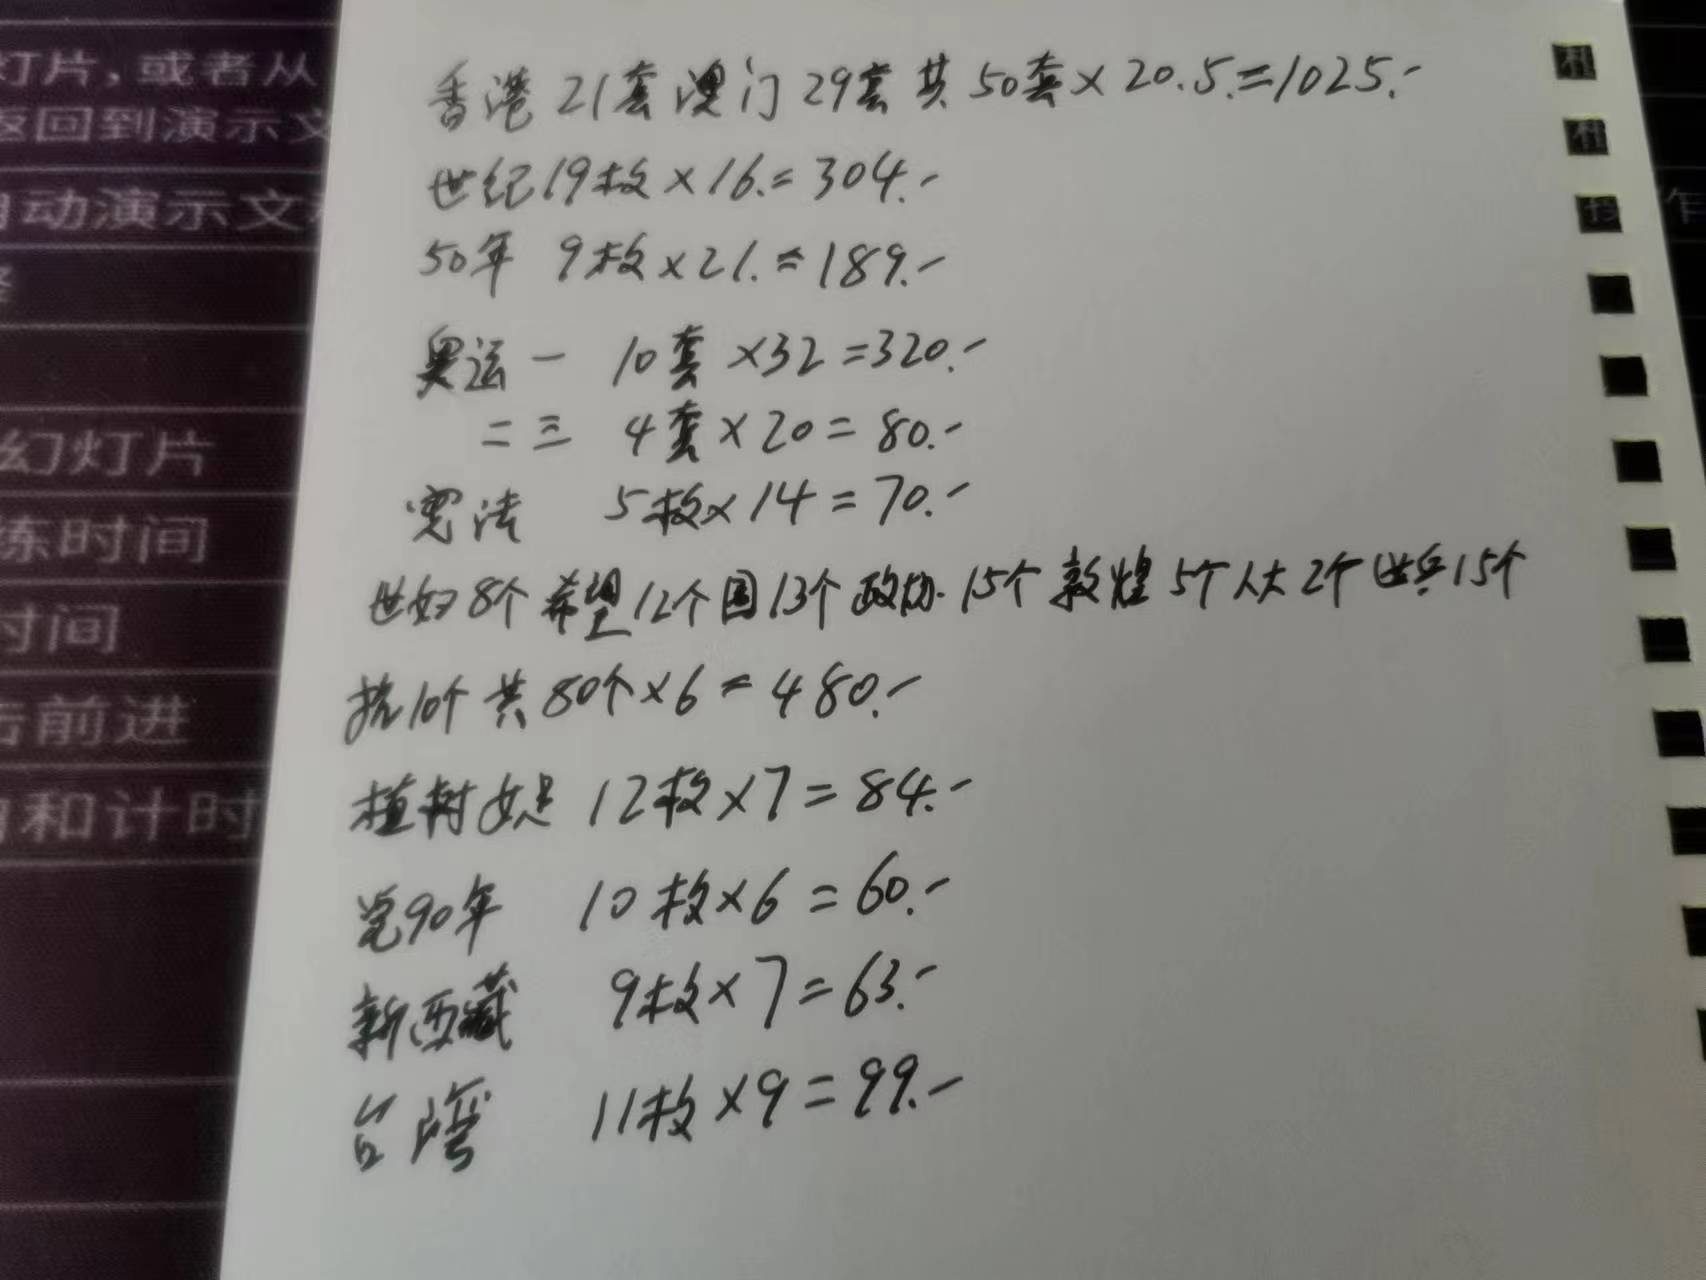 香港21套澳门29套共50套×20.5.=1025.-
世纪19枚×16.=304.-
50年 9枚×21.=189.-
奥运一 10套×32=320.-
二三 4套×20=80.-
宪法 5枚×14=70.-
世妇8个希望12个国13个政协.15个敦煌5个人大2个世乒15个
抗10个共80个×6=480.-
植树女足 12枚×7=84.-
党90年 10枚×6=60.-
新西藏 9枚×7=63.-
台湾 11枚×9=99.-
灯片,或者从
返回到演示文
自动演示文
幻灯片
练时间
时间
击前进
和计时